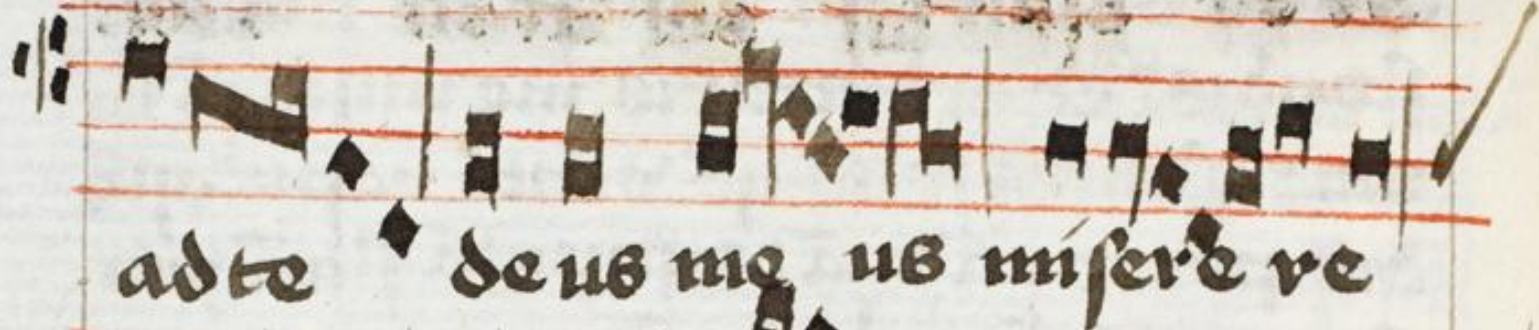 ad te deus meus miserere